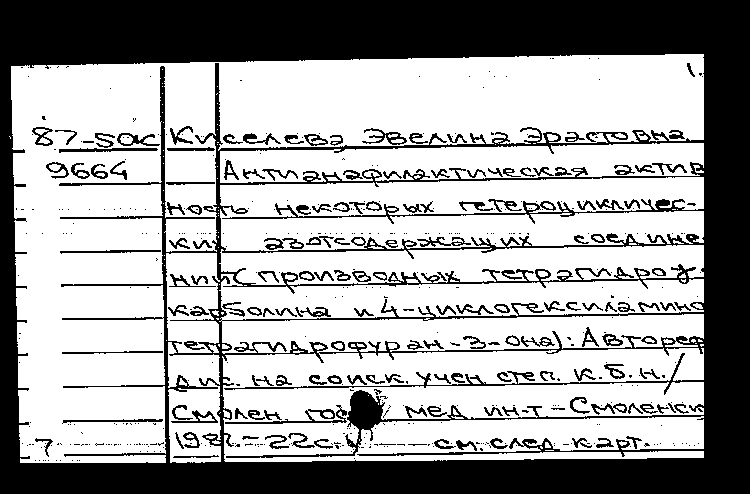 1.
87-5ас Киселева Эвелина Эрастовна
9664 Антианафилактическая актив
ность некоторых гетероцикличес-
ких азотсодержащих соедине
ний (производных тетрагидро-γ-
карболина и 4-циклогексиламино
тетрагидрофуран-3-она): Автореф
дис. на соиск. учен степ. к.б.н./
Смолен. гос мед. ин-т - Смоленск
7 22с. см. след карт.